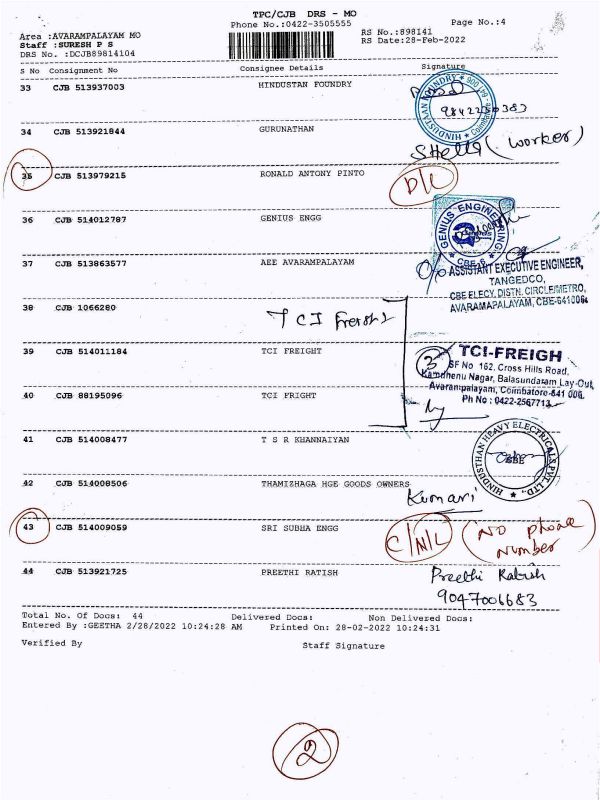 TPC/CJB DRS - MO
Phone No.:0422-3505555
Page No.:4
Area :AVARAMPALAYAM MO
RS No.:898141
Staff :SURESH P S
RS Date:28-Feb-2022
DRS No. :DCJB89814104
S No Consignment No Consignee Details Signature
33 CJB 513937003 HINDUSTAN FOUNDRY
HINDUSTAAN FOUNDRY
Coimbatore
34 CJB 513921844 GURUNATHAN
(worker)
35 CJB 513979215 RONALD ANTONY PINTO
D/L
36 CJB 514012787 GENIUS ENGG
GENIUS ENGINEERING
CBE-6
37 CJB 513863577 AEE AVARAMPALAYAM
ASSISTANT EXECUTIVE ENGINEER,
TANGEDCO,
CBE ELECY, DISTN. CIRCLE/METRO,
AVARAMAPALAYAM, CBE-641006.
38 CJB 1066280 TCI
39 CJB 514011184 TCI FREIGHT
3
TCI-FREIGH
SF No 162, Cross Hills Road,
Kamdhenu Nagar, Balasundaram Lay-Out,
Avarampalayam, Coimbatore-641 006.
Ph No : 0422-2567713
40 CJB 88195096 TCI FRIGHT
41 CJB 514008477 T S R KHANNAIYAN
HINDUSTHAN HEAVY ELECTRICALS PVT. LTD.,
CBE
42 CJB 514008506 THAMIZHAGA HGE GOODS OWNERS
Kumari
43 CJB 514009059 SRI SUBHA ENGG
C/N/L (NO phone
number
44 CJB 513921725 PREETHI RATISH
Preethi Ratish
9047006683
Total No. Of Docs: 44 Delivered Docs: Non Delivered Docs:
Entered By :GEETHA 2/28/2022 10:24:28 AM Printed On: 28-02-2022 10:24:31
Verified By Staff Signature
2